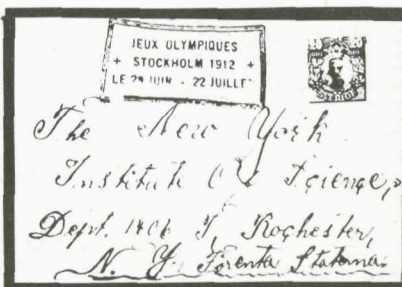 JEUX OLYMPIQUES
+ STOCKHOLM 1912 +
LE 29 JUIN - 22 JUILLET
SVERIGE
The New York
Institute Of Science,
Dept. 1406 T, Rochester,
N. Y. Förenta Staterna.